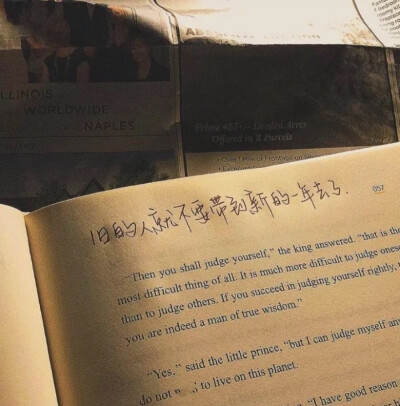 ILLINOIS
WORLDWIDE
NAPLES
旧的人就不要带到新的一年去了.
057
"Then you shall judge yourself," the king answered. "that is the
most difficult thing of all. It is much more difficult to judge onese
than to judge others. If you succeed in judging yourself rightly, t
you are indeed a man of true wisdom."
"Yes," said the little prince, "but I can judge myself any
do not to live on this planet.
"I have good reason